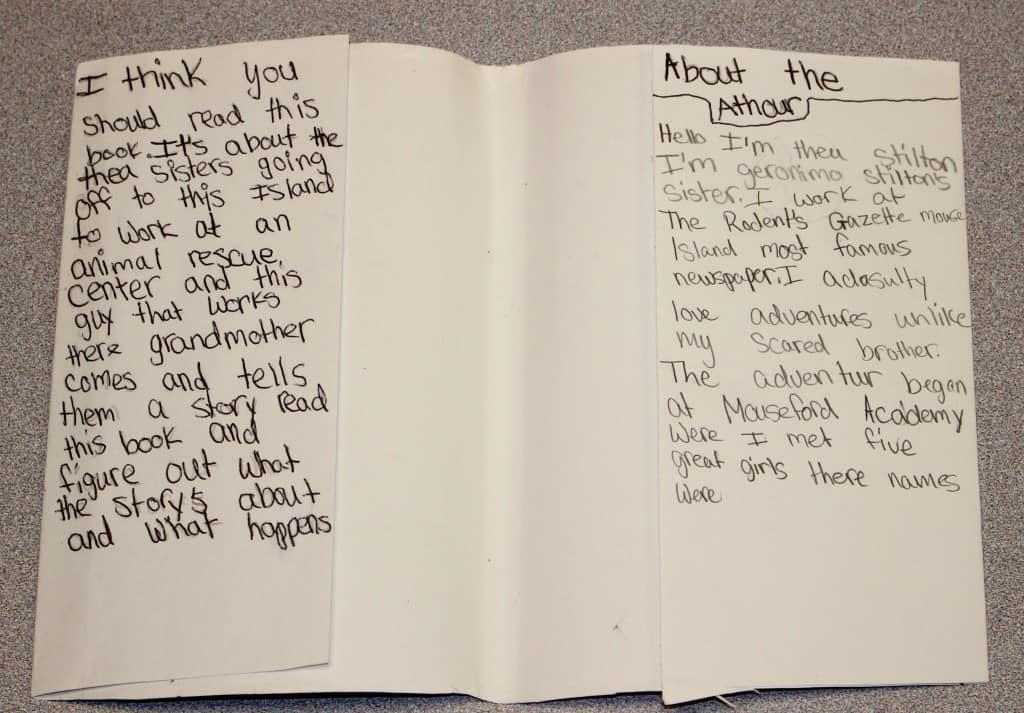 I think you
should read this
book. It's about the
thea sisters going
off to this Island
to work at an
animal rescue
center and this
guy that works
there grandmother
comes and tells
them a story read
this book and
figure out what
the story's about
and what happens
About the
Athour
Hello I'm thea stilton
I'm geronimo stilton's
sister. I work at
The Rodent's Gazette mouse
Island most famous
newspaper. I adasulty
love adventures unlike
my scared brother.
The adventur began
at Mouseford Academy
were I met five
great girls there names
were